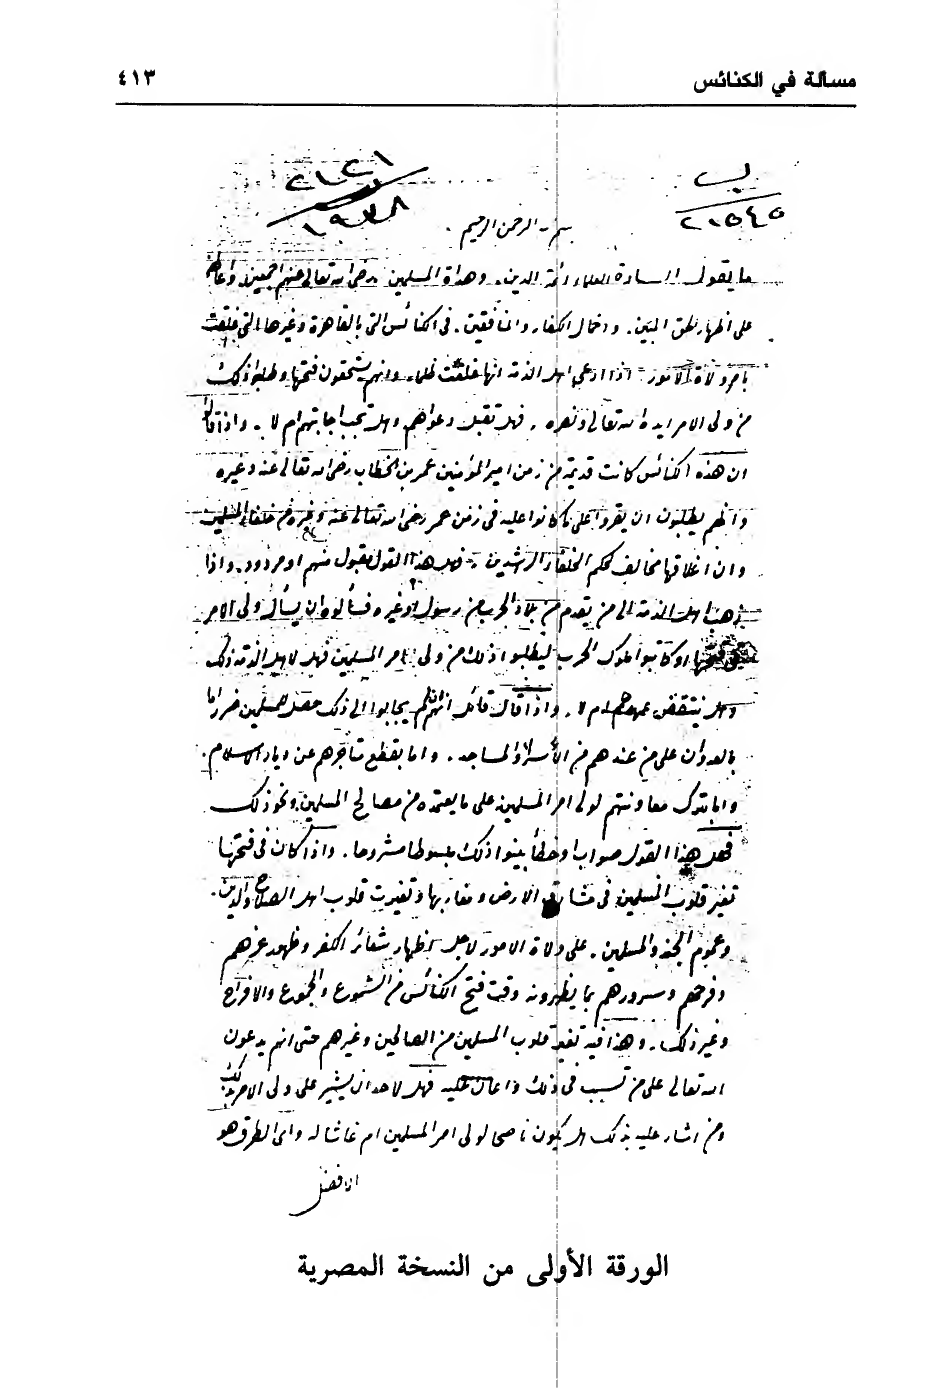 مسألة في الكنائس
٤١٣
ب
٢١٥٤٥
بسم الله الرحمن الرحيم .
ما يقول السادة العلماء أئمة الدين . وهداة المسلمين رضي الله تعالى عنهم اجمعين واعانهم
على اظهار الحق المبين . واخمال الكفار والمنافقين . في الكنائس التي بالقاهرة وغيرها التي غلقت
بامر ولاة الامور . اذا ادعى اهل الذمة انها غلقت ظلما . وانهم يستحقون فتحها وطلبوا ذلك
من ولي الامر ايده الله تعالى ونصره . فهل تقبل دعواهم وهل تجب اجابتهم ام لا . واذا قالوا
ان هذه الكنائس كانت قديمة من زمن امير المؤمنين عمر بن الخطاب رضي الله تعالى عنه وغيره
وانهم يطلبون ان يقروا على ما كانوا عليه في زمن عمر رضي الله تعالى عنه وغيره من خلفاء المسلمين
وان اغلاقها مخالف لحكم الخلفاء الراشدين . فهل هذا القول مقبول منهم او مردود . واذا
ذهب اهل الذمة الى من يقدم من بلاد الحرب من رسول او غيره فسألوه ان يسأل ولي الامر
في فتحها او كاتبوا ملوك الحرب ليطلبوا ذلك من ولي امر المسلمين فهل لاهل الذمة ذلك
وهل ينتقض عهدهم ام لا . واذا قال قائل انهم ان لم يجابوا الى ذلك حصل للمسلمين ضرر اما
بالعدوان على من عندهم من الأسراء والمساجد . واما بقطع متاجرهم عن ديار الاسلام .
واما بترك معاونتهم لولي امر المسلمين على ما يعتمده من مصالح المسلمين ونحو ذلك
فهل هذا القول صواب او خطأ بينوا ذلك مبسوطا مشروحا . واذا كان في فتحها
تغير قلوب المسلمين في مشارق الارض ومغاربها وتغيرت قلوب اهل الصلاح والدين .
وعموم الجند والمسلمين . على ولاة الامور لاجل اظهار شعائر الكفر وظهور عزهم
وفرحهم وسرورهم بما يظهرونه وقت فتح الكنائس من الشموع والجموع والافراح
وغير ذلك . وهذا فيه تغير قلوب المسلمين من الصالحين وغيرهم حتى انهم يدعون
الله تعالى على من تسبب في ذلك واعان عليه فهل لاحد ان يشير على ولي الامر بذلك
ومن اشار عليه بذلك هل يكون ناصحا لولي امر المسلمين ام غاشا له واي الطرق هو
الافضل
الورقة الأولى من النسخة المصرية